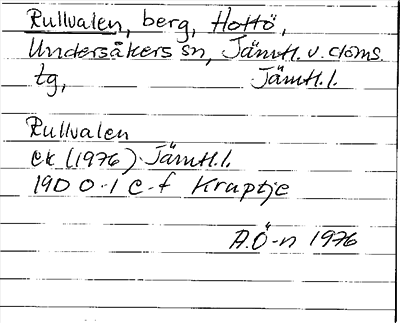 Rullvalen, berg, Hottö,
Undersåkers sn, Jämtl. v. doms.
tg, Jämtl. l.
Rullvalen
ek (1976) Jämtl. l.
19D 0-1 c-f Kruptje
A.Ö-n 1976